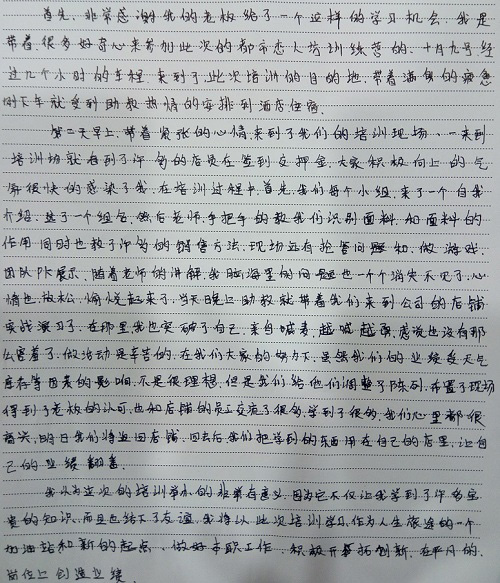 首先，非常感谢我的老板给了一个这样的学习机会，我是
带着很多好奇心来参加此次的都市恋人培训练营的，十月九号，经
过几个小时的车程，来到了此次培训的目的地，带着满身的疲惫
刚下车就受到助教热情的安排到酒店住宿。
第二天早上，带着紧张的心情来到了我们的培训现场，一来到
培训场就看到了许多的店员在签到交押金，大家积极向上的气
氛很快的感染了我，在培训过程中，首先，我们每个小组，来了一个自我
介绍，选了一个组名，然后老师，手把手的教我们识别面料，和面料的
作用，同时也教了许多的销售方法，现场还有抢答问题和，做游戏，
团队PK展示，随着老师的讲解，我脑海里的问题也一个个消失不见了，心
情也，放松，愉悦起来了，当天晚上助教就带着我们来到公司的店铺
实战演习了，在那里我也突破了自己，亲自喊麦，越喊越勇，感觉也没有那
么害羞了，做活动是辛苦的，在我们大家的努力下，虽然我们的业绩受天气
库存等因素的影响，不是很理想，但是我们给他们调整了陈列，布置了现场
得到了老板的认可，也和店铺的员工交流了很多，学到了很多，我们心里都很
高兴，明日我们将返回店铺，回去后，我们把学到的东西用在自己的店里，让自
己的业绩翻番。
我认为这次的培训举办的非常有意义，因为它不仅让我学到了许多宝
贵的知识，而且也结下了友谊，我将以此次培训学习，作为人生旅途的一个
加油站和新的起点，做好本职工作，积极开拓创新，在平凡的，
岗位上创造业绩。